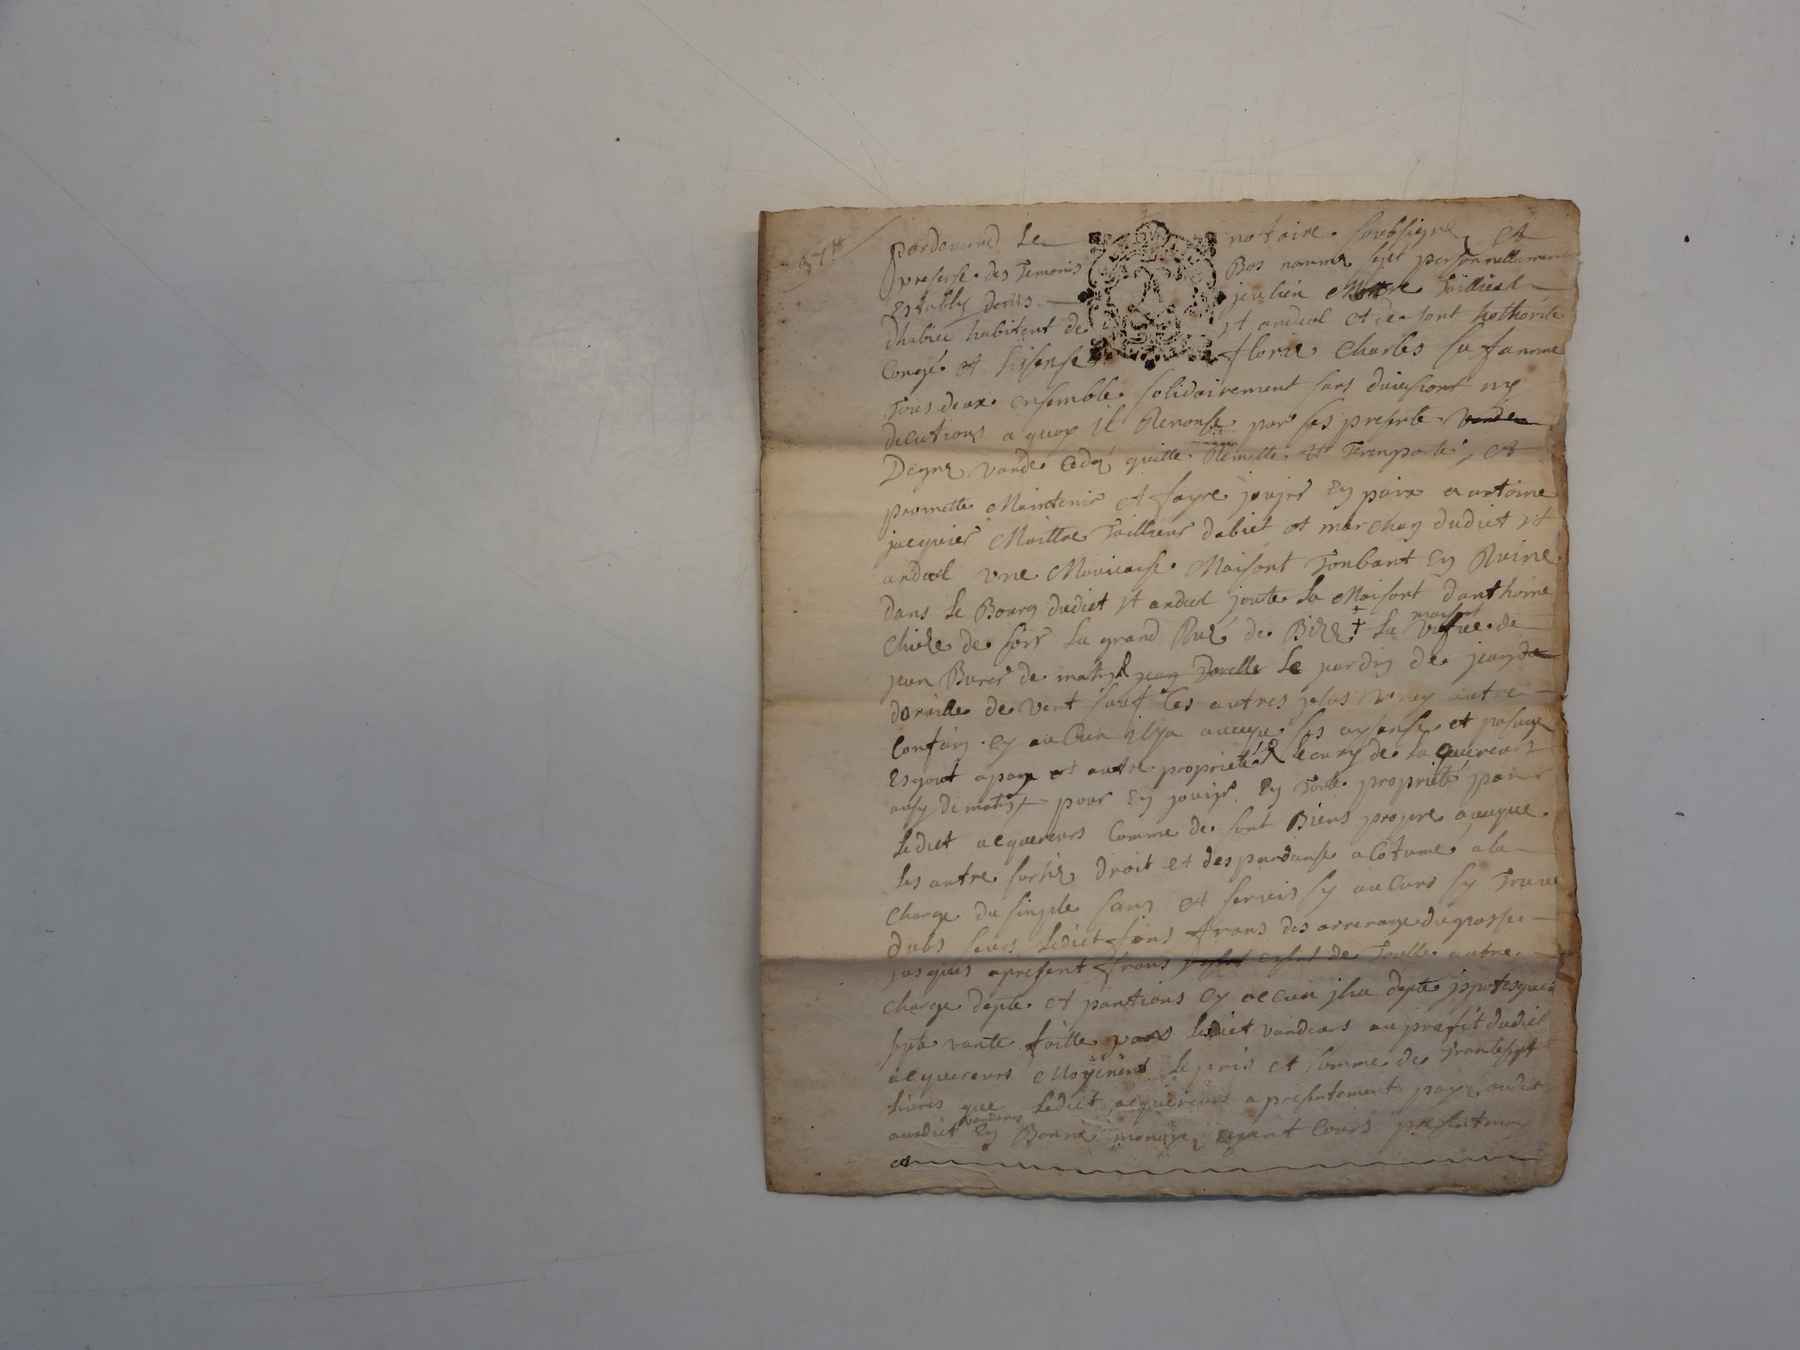 37tt
pardevand le notaire soubsigne et
presense des temoins Bas nommes sest personnellement
establis denis julien Maitre Tailleur
dhabiee habitent de st andiol et de sont hothorite
Congé et lisense florie Charles sa famme
Tous deux ensemble solidairement sans duiesiont ny
dicutions a quoy il Renonse par ses presente
Degré vande cedé quitte Remette et Tranporte, et
promette Maintenir et fayre jouyr en paix a antoine
jacquier Maittre Taillieur dabiet et marchan dudict st
andiol une Mauieaise Maisont Tonbant en Ruine
dans le Bourg dudict st andiol joute la Maisont danthoine
de soir la grand Rue de Bize + la maisont vefue de
jean de matin jean le jardin de jean de
doraille de vent sauf les autres plus vray autre
Confain sy aucun ilya auecque ses aysanse et pasage
Esgout apage et autre proprieté lecury de la quereurs
ausy de matin pour en jouyr en Toute proprieté par
ledict acquereurs Comme de sont Biens propre auecque
les autre sortie droit et despandanse acotumé a la
charge du simple sans et servis sy aucuns sy Treuue
dubs ledict fons frans des arrerage du passe
jusques apresent frans de Toutte autre
charge depte et pantions sy aucun jlia depte jspotesquer
faitte ledict vandeurs au profit dudict
acquereurs Moyenent le pris et somme de Trantesept
livres que ledict acquereurs a presentement payé audit
audict vandeurs en Bonne monoye ayant cours
et